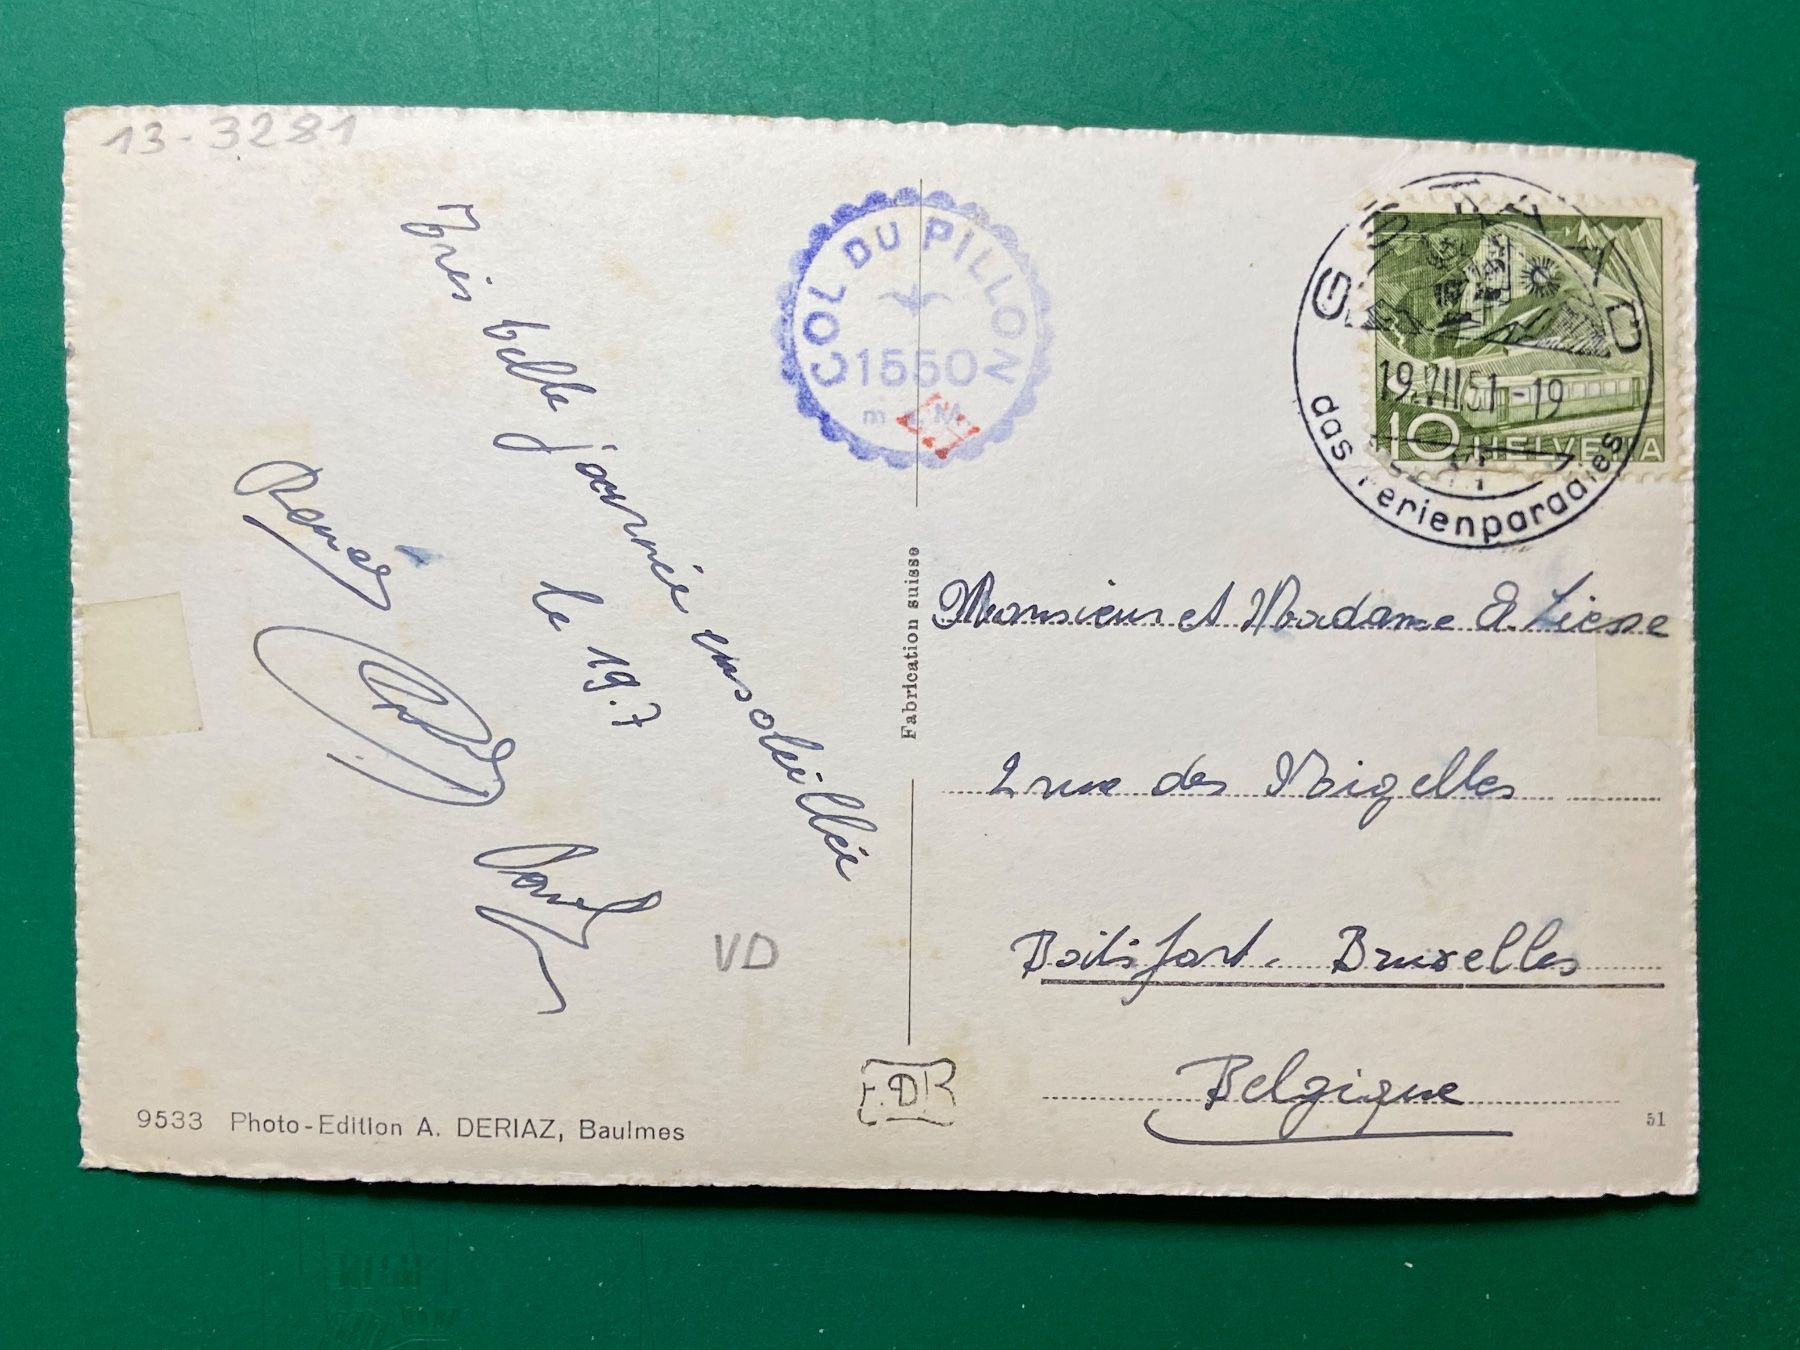 13-3281
Très belle journée ensoleillée
le 19.7
Renée
Paul
VD
9533 Photo-Edition A. DERIAZ, Baulmes
COL DU PILLON
1550
m
Fabrication suisse
GSTAAD
19.VII.51-19
das Ferienparadies
10 HELVETIA
Monsieur et Madame
2 rue des
Boitsfort. Bruxelles
Belgique
51